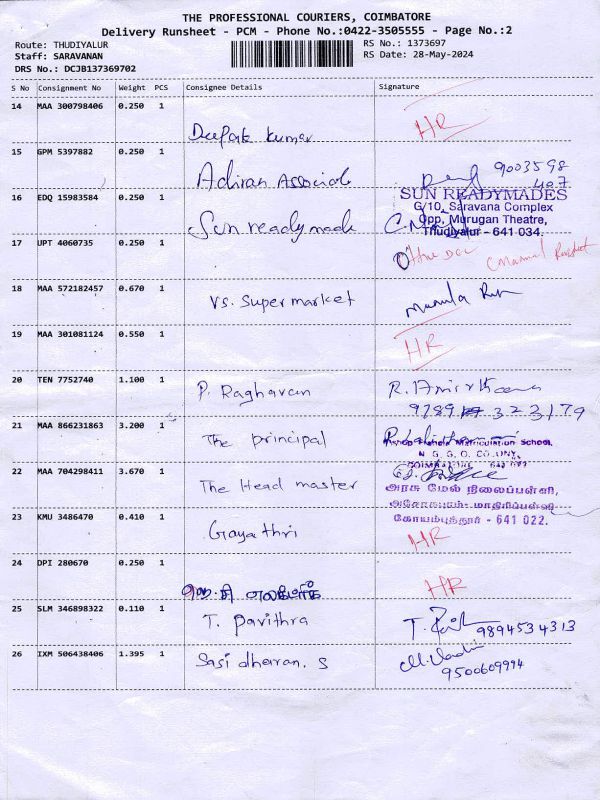 THE PROFESSIONAL COURIERS, COIMBATORE
Delivery Runsheet - PCM - Phone No.:0422-3505555 - Page No.:2
Route: THUDIYALUR
RS No.: 1373697
Staff: SARAVANAN
RS Date: 28-May-2024
DRS No.: DCJB137369702
S No Consignment No Weight PCS Consignee Details Signature
14 MAA 300798406 0.250 1
Deepak Kumar HR
15 GPM 5397882 0.250 1
Adiran Associate 9003598
407
16 EDQ 15983584 0.250 1
Sun readymade
SUN READYMADES
G/10, Saravana Complex
Opp, Murugan Theatre,
Thudiyalur - 641 034.
17 UPT 4060735 0.250 1
18 MAA 572182457 0.670 1
Vs. Super market
19 MAA 301081124 0.550 1
HR
20 TEN 7752740 1.100 1
P. Raghavan
21 MAA 866231863 3.200 1
The principal
Matriculation School,
N. G. G. O. COLONY,
22 MAA 704298411 3.670 1
The Head master
அரசு மேல் நிலைப்பள்ளி,
கோயம்புத்தூர் - 641 022.
23 KMU 3486470 0.410 1
Gayathri HR
24 DPI 280670 0.250 1
HR
25 SLM 346898322 0.110 1
T. Pavithra 9894534313
26 IXM 506438406 1.395 1
Sasi dharan. S
9500609994